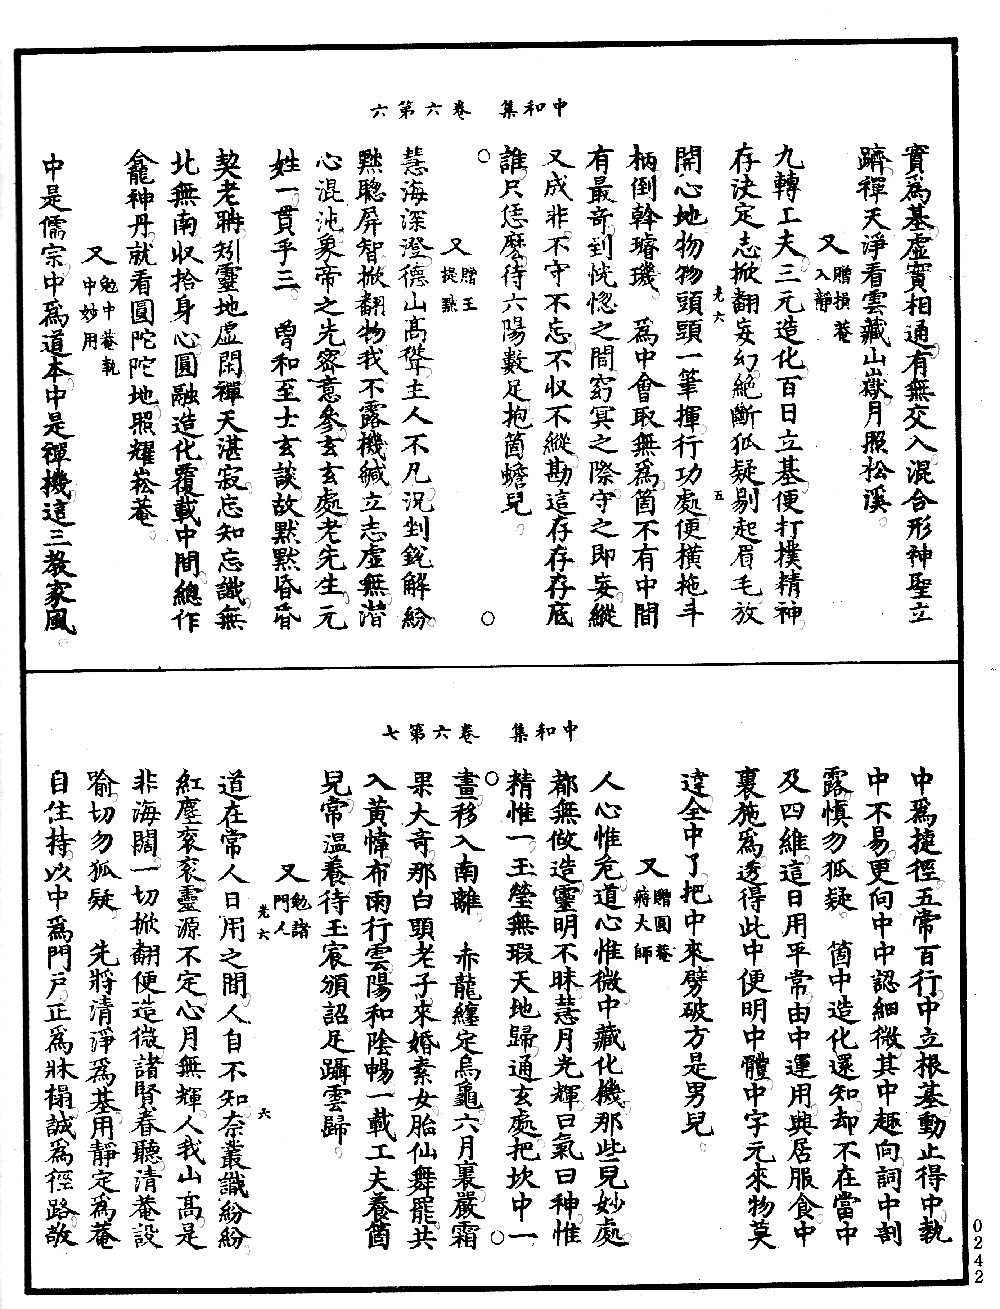 中和集　卷六第六
實爲基虛實相通有無交入混合形神聖立
躋禪天淨看雲藏山嶽月照松溪
又　贈損菴入靜
九轉工夫三元造化百日立基便打撲精神
存決定志掀翻妄幻絕斷狐疑剔起眉毛放
光六　五
開心地物物頭頭一筆揮行功處便橫拖斗
柄倒斡璿璣　爲中會取無爲箇不有中間
有最奇到恍惚之間窈冥之際守之即妄縱
又成非不守不忘不收不縱勘這存存存底
誰只恁麼待六陽數足抱箇蟾兒
又　贈王提點
慧海深澄德山高聳主人不凡況剉銳解紛
黜聰屏智掀翻物我不露機緘立志虛無潛
心混沌象帝之先密意參玄玄處老先生元
姓一貫乎三　曾和至士玄談故默默昏昏
契老聃矧靈地虛閑禪天湛寂忘知忘識無
北無南收拾身心圓融造化覆載中間總作
龕神丹就看圓陀陀地照耀崧菴
又　勉中菴執中妙用
中是儒宗中爲道本中是禪機這三教家風
中和集　卷六第七
中爲捷徑五常百行中立根基動止得中執
中不易更向中中認細微其中趣向詞中剖
露慎勿狐疑　箇中造化還知却不在當中
及四維這日用平常由中運用興居服食中
裏施爲透得此中便明中體中字元來物莫
違全中了把中來劈破方是男兒
又　贈圓菴蔣大師
人心惟危道心惟微中藏化機那些兒妙處
都無做造靈明不昧慧月光輝曰氣曰神惟
精惟一玉瑩無瑕天地歸通玄處把坎中一
畫移入南離　赤龍纏定烏龜六月裏嚴霜
果大奇那白頭老子來婚素女胎仙舞罷共
入黃幃布雨行雲陽和陰暢一載工夫養箇
兒常溫養待玉宸頒詔足躡雲歸
又　勉諸門人
光六　六
道在常人日用之間人自不知奈叢識紛紛
紅塵衮衮靈源不定心月無輝人我山高是
非海闊一切掀翻便造微諸賢眷聽清菴設
喻切勿狐疑　先將清淨爲基用靜定爲菴
自住持以中爲門戶正爲牀榻誠爲徑路敬
0242